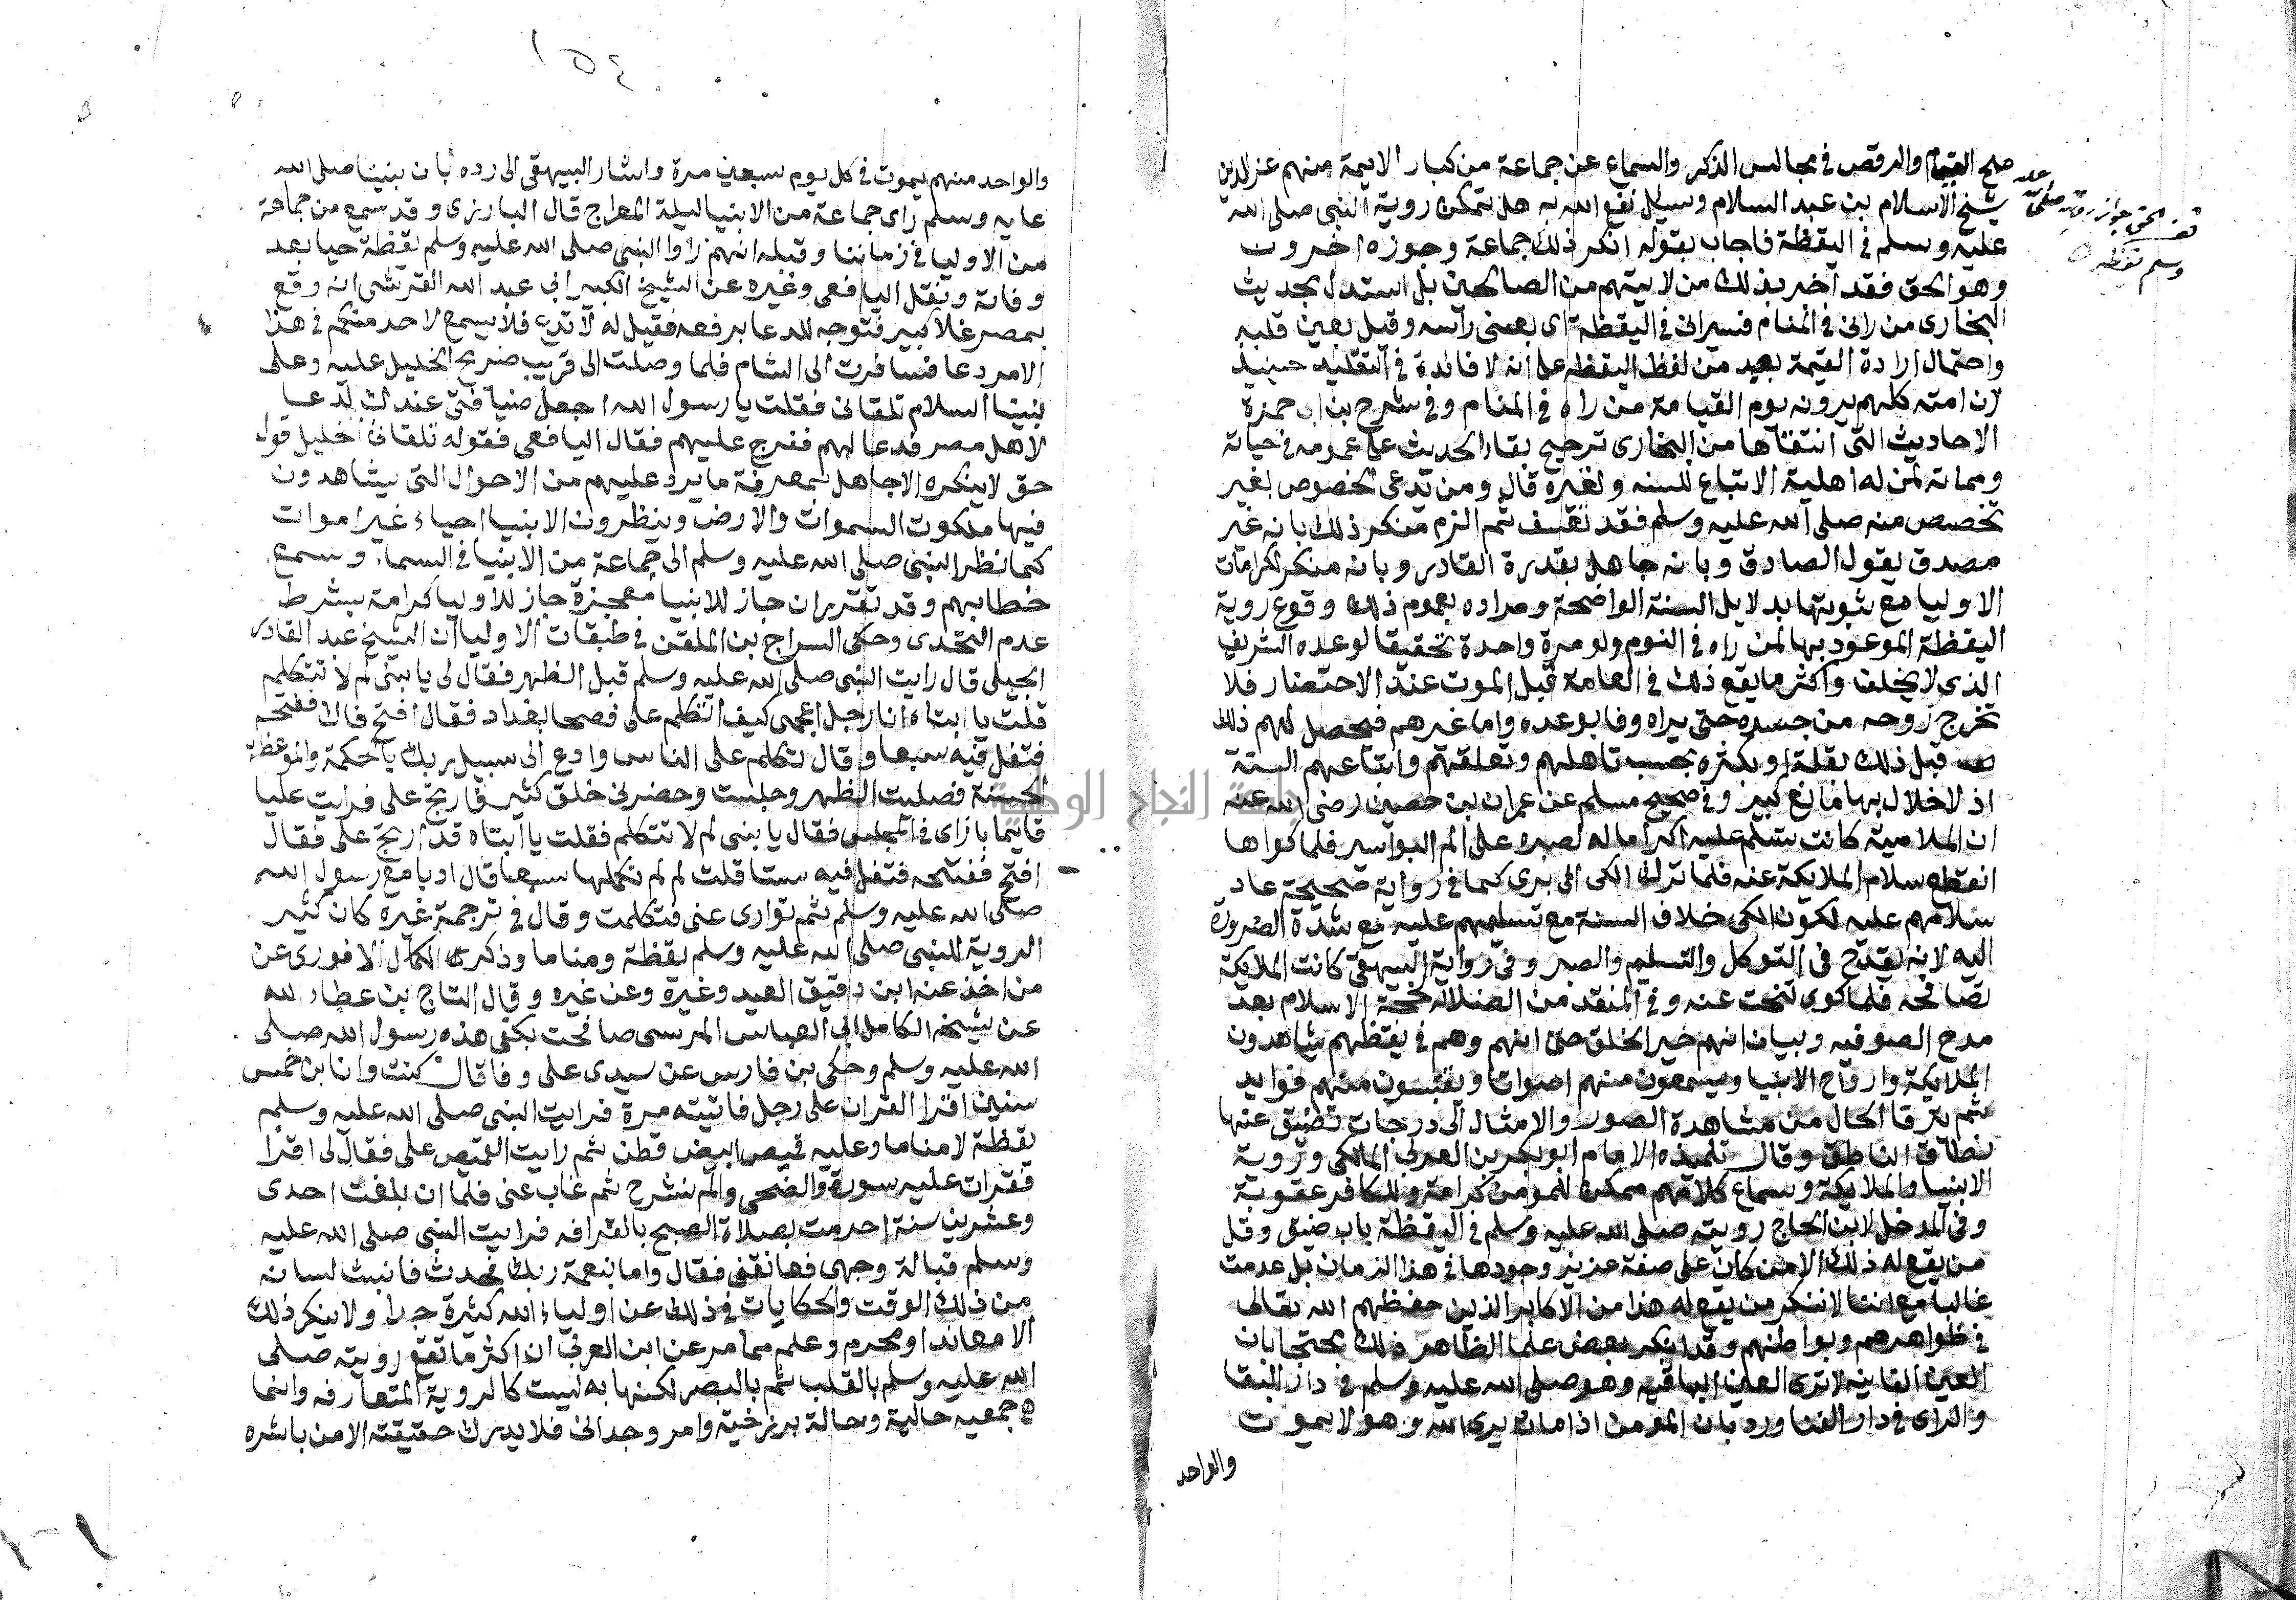 صح القيام والرقص في مجالس الذكر والسماع عن جماعة من كبار الايمة منهم عز الدين
شيخ الاسلام بن عبد السلام وسيل نفع الله به هل تمكن روية النبي صلى الله
عليه وسلم في اليقظة فاجاب بقوله انكر ذلك جماعة وجوزه اخرون
وهو الحق فقد اخبر بذلك من لا يتهم من الصالحين بل استدل بحديث
البخاري من راني في المنام فسيراني في اليقظة اي بعيني راسه وقيل بعين قلبه
واحتمال ارادة القيمة بعيد من لفظ اليقظه على انه لا فائدة في التقليد حينيذ
لان امته كلهم يرونه يوم القيامة من راه في المنام وفي شرح بن ابي حمزة
الاحاديث التي انتقاها من البخاري ترجيح بقاء الحديث على عمومه في حياته
ومماته لمن له اهلية الاتباع للسنه ولغيره قال ومن تدعى الخصوص بغير
تخصيص منه صلى الله عليه وسلم فقد تعسف ثم الزم منكر ذلك بانه غير
مصدق بقول الصادق وبانه جاهل بقدرة القادر وبانه منكر لكرامات
الاوليا مع ثبوتها بدلايل السنة الواضحة ومراده بعموم ذلك وقوع روية
اليقظة الموعود بها لمن راه في النوم ولو مرة واحدة تحقيقا لوعده الشريف
الذي لا يخلف واكثر ما يقع ذلك في العامة قبل الموت عند الاحتضار فلا
تخرج روحه من جسده حتى يراه وفا بوعده واما غيرهم فيحصل لهم ذلك
قبل ذلك بقلة او بكثره بحسب تاهلهم وتعلقهم واتباعهم السنة
اذ لاخلال بها مانع كبير وفي صحيح مسلم عن عمران بن حصين رضي الله عنه
ان الملايكة كانت تسلم عليه اكراما له لصبره على الم البواسير فلما كواها
انقطع سلام الملايكة عنه فلما ترك الكي اي بري كما في رواية صحيحة عاد
سلامهم عليه لكون الكي خلاف السنة مع تسليمهم عليه مع شدة الضرورة
اليه لانه يقدح في التوكل والتسليم والصبر وفي رواية البيهقي كانت الملايكة
تصافحه فلما كوى تنحت عنه وفي المنقد من الضلال لحجة الاسلام بعد
مدح الصوفيه وبيان انهم خير الخلق حتى انهم وهم في يقظتهم يشاهدون
الملايكة وارواح الانبيا ويسمعون منهم اصواتا ويقتبسون منهم فوايد
ثم يترقا الحال من مشاهدة الصور والامثال الى درجات تضيق عنها
نطاق الناطق وقال تلميذه الامام ابو بكر بن العربي المالكي وروية
الانبيا والملايكة وسماع كلامهم ممكن للمومن كرامة وللكافر عقوبة
وفي المدخل لابن الحاج رويته صلى الله عليه وسلم في اليقظة باب ضيق وقل
من يقع له ذلك الا من كان على صفة عزيز وجودها في هذا الزمان بل عدمت
غالبا مع اننا لا ننكر من يقع له هذا من الاكابر الذين حفظهم الله تعالى
في ظواهرهم وبواطنهم وقد انكر بعض علما الظاهر ذلك محتجا بان
العين الفانيه لا ترى العين الباقيه وهو صلى الله عليه وسلم في دار البقا
والراي في دار الفنا ورد بان المومن اذا مات يرى الله وهو لا يموت
والواحد
جامعة النجاح الوطنية
والواحد منهم يموت في كل يوم سبعين مرة واشار البيهقي الى رده بان نبينا صلى الله
عليه وسلم راى جماعة من الانبيا ليلة المعراج قال البارزي وقد سمع من جماعة
من الاوليا في زماننا وقبله انهم راوا النبي صلى الله عليه وسلم يقظة حيا بعد
وفاته ونقل اليافعي وغيره عن الشيخ الكبير ابي عبد الله القرشي انه وقع
بمصر غلا كبير فتوجه للدعا برفعه فقيل له لا تدع فلا يسمع لاحد منكم في هذا
الامر دعا فسافرت الى الشام فلما وصلت الى قريب ضريح الخليل عليه وعلى
نبينا السلام تلقاني فقلت يا رسول الله اجعل ضيافتي عندك الدعا
لاهل مصر فدعا لهم ففرج عليهم فقال اليافعي فقوله تلقاني الخليل قول
حق لا ينكره الا جاهل بمعرفة ما يرد عليهم من الاحوال التي يشاهدون
فيها ملكوت السموات والارض وينظرون الانبيا احياء غير اموات
كما نظر النبي صلى الله عليه وسلم الى جماعة من الانبيا في السماء وسمع
خطابهم وقد تقرر ان جاز للانبيا معجزة جاز للاوليا كرامة بشرط
عدم التحدي وحكى السراج بن الملقن في طبقات الاوليا ان الشيخ عبد القادر
الجيلي قال رايت النبي صلى الله عليه وسلم قبل الظهر فقال لي يا بني لم لا تتكلم
قلت يا ابتاه انا رجل اعجمي كيف اتكلم على فصحا بغداد فقال افتح فاك ففتحته
فتفل فيه سبعا وقال تكلم على الناس وادع الى سبيل ربك بالحكمة والموعظة
الحسنة فصليت الظهر وجلست وحضرني خلق كثير فارتج علي فرايت عليا
قايما بازاي في المجلس فقال يا بني لم لا تتكلم فقلت يا ابتاه قد ارتج علي فقال
افتح ففتحه فتفل فيه ستا قلت لم لم تكملها سبعا قال ادبا مع رسول الله
صلى الله عليه وسلم ثم توارى عني فتكلمت وقال في ترجمة غيره كان كثير
الروية للنبي صلى الله عليه وسلم يقظة ومناما وذكر الكمال الادفوي عن
من اخذ عنه ابن دقيق العيد وغيره وعن غيره وقال التاج بن عطاء لله
عن شيخه الكامل ابي العباس المرسي صافحت بكفي هذه رسول الله صلى
الله عليه وسلم وحكى بن فارس عن سيدي علي وفا قال كنت وانا بن خمس
سنين اقرا القران على رجل فاتيته مرة فرايت النبي صلى الله عليه وسلم
يقظة لا مناما وعليه قميص ابيض قطن ثم رايت القميص علي فقال لي اقرا
فقرات عليه سورة والضحى والم نشرح ثم غاب عني فلما ان بلغت احدى
وعشرين سنة احرمت بصلاة الصبح بالقرافه فرايت النبي صلى الله عليه
وسلم قبالة وجهي فعانقني فقال واما بنعمة ربك فحدث فانبث لسانه
من ذلك الوقت والحكايات في ذلك عن اولياء الله كثيرة جدا ولا ينكر ذلك
الا معاند او محروم وعلم مما مر عن ابن العربي ان اكثر ما تقع رويته صلى
الله عليه وسلم بالقلب ثم بالبصر لكنها به ليست كالروية المتعارفه وانما
هي جمعيه حالية وحالة برزخية وامر وجداني فلا يدرك حقيقته الا من باشره